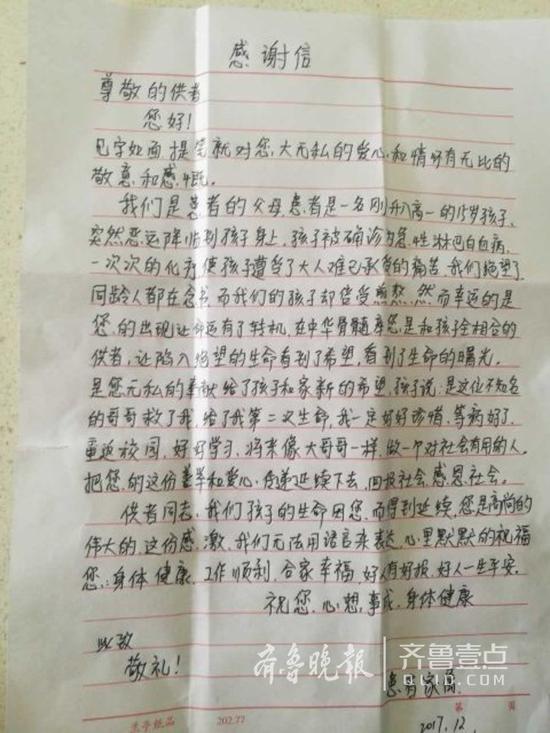 感谢信
尊敬的供者
您好!
见字如面,提笔就对您,大无私的爱心,和情好有无比的
敬意和感慨。
我们是患者的父母,患者是一名刚升入高一的15岁孩子,
突然恶运降临到孩子身上,孩子被确诊为急性淋巴白血病,
一次次的化疗使孩子遭受了大人难已承受的痛苦,我们绝望了
同龄人都在念书而我们的孩子却倍受煎熬,然而幸运的是
您的出现让命运有了转机,在中华骨髓库您是和孩子全相合的
供者,让陷入绝望的生命看到了希望,看到了生命的曙光。
是您无私的奉献给了孩子和家新的希望,孩子说:是这位不知名
的哥哥救了我,给了我第二次生命,我一定好好珍惜,等病好了,
重返校园,好好学习,将来像大哥哥一样,做一个对社会有用的人。
把您的这份善举和爱心,传递延续下去,回报社会,感恩社会。
供者同志,我们孩子的生命因您,而得到延续,您是高尚的
伟大的,这份感激,我们无法用语言来表达,心里默默的祝福
您:身体健康,工作顺利,合家幸福,好人有好报,好人一生平安。
祝您,心想事成,身体健康
此致
敬礼!
患者家属
2017.12.
202.77
第 页
齐鲁晚报
齐鲁壹点
QLYD.COM